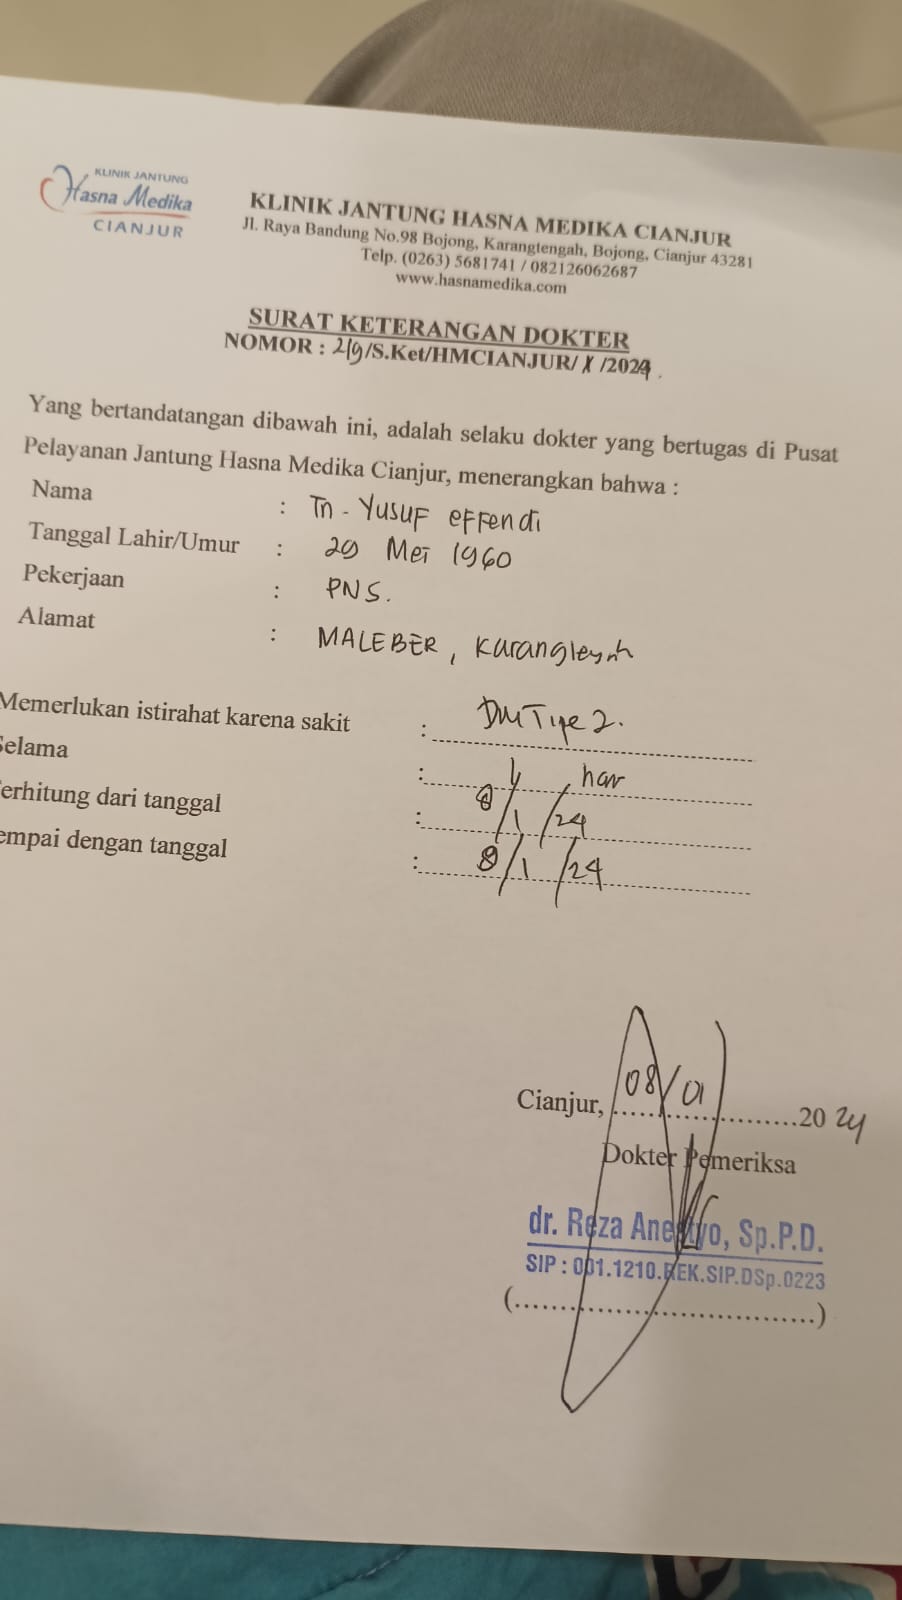 KLINIK JANTUNG
Hasna Medika
CIANJUR
KLINIK JANTUNG HASNA MEDIKA CIANJUR
Jl. Raya Bandung No.98 Bojong, Karangtengah, Bojong, Cianjur 43281
Telp. (0263) 5681741 / 082126062687
www.hasnamedika.com
SURAT KETERANGAN DOKTER
NOMOR : 219/S.Ket/HMCIANJUR/ /2024.
Yang bertandatangan dibawah ini, adalah selaku dokter yang bertugas di Pusat
Pelayanan Jantung Hasna Medika Cianjur, menerangkan bahwa :
Nama : Tn - Yusuf effendi
Tanggal Lahir/Umur : 29 Mei 1960
Pekerjaan : PNS.
Alamat : MALEBER,
Memerlukan istirahat karena sakit : DM Tipe 2.
Selama : hari
erhitung dari tanggal : 8/1/24
empai dengan tanggal : 8/1/24
Cianjur, 08/01 2024
Dokter Pemeriksa
dr. Reza , Sp.P.D.
SIP : 001.1210.REK.SIP.DSp.0223
(....................................)